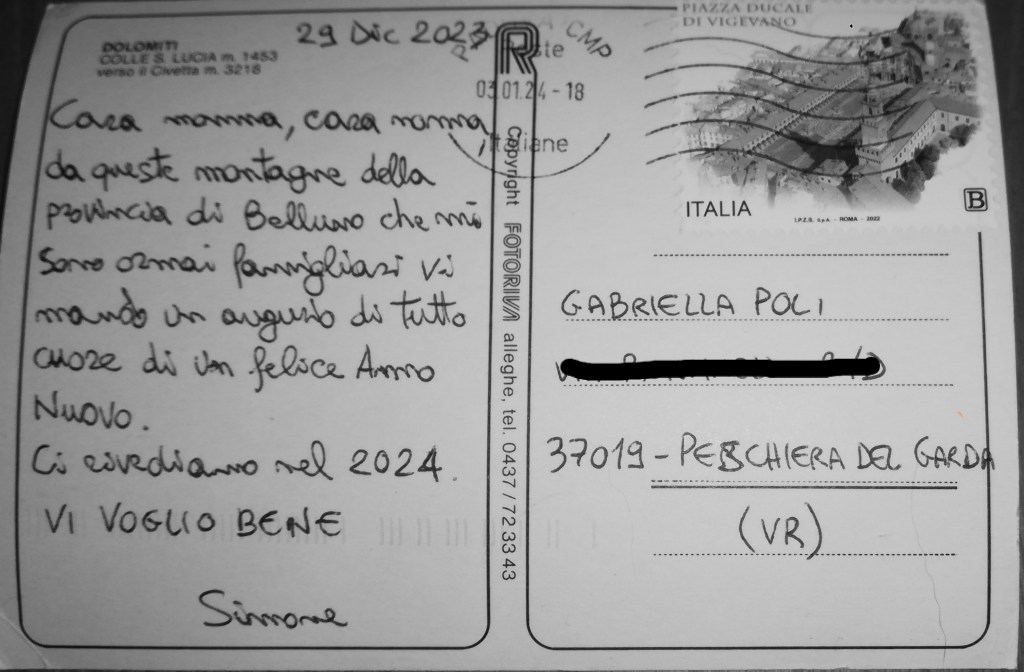 29 Dic 2023
DOLOMITI
COLLE S. LUCIA m. 1453
verso il Civetta m. 3218
Cara mamma, cara nonna
da queste montagne della
provincia di Belluno che mi
sono ormai famigliari vi
mando un augurio di tutto
cuore di un felice Anno
Nuovo.
Ci rivediamo nel 2024.
VI VOGLIO BENE
Simone
R
Copyright FOTORIVA alleghe, tel. 0437 / 72 33 43
Poste
CMP
03.01.24 - 18
Italiane
PIAZZA DUCALE
DI VIGEVANO
ITALIA
I.P.Z.S. S.p.A. - ROMA - 2022
B
GABRIELLA POLI
37019 - PESCHIERA DEL GARDA
(VR)